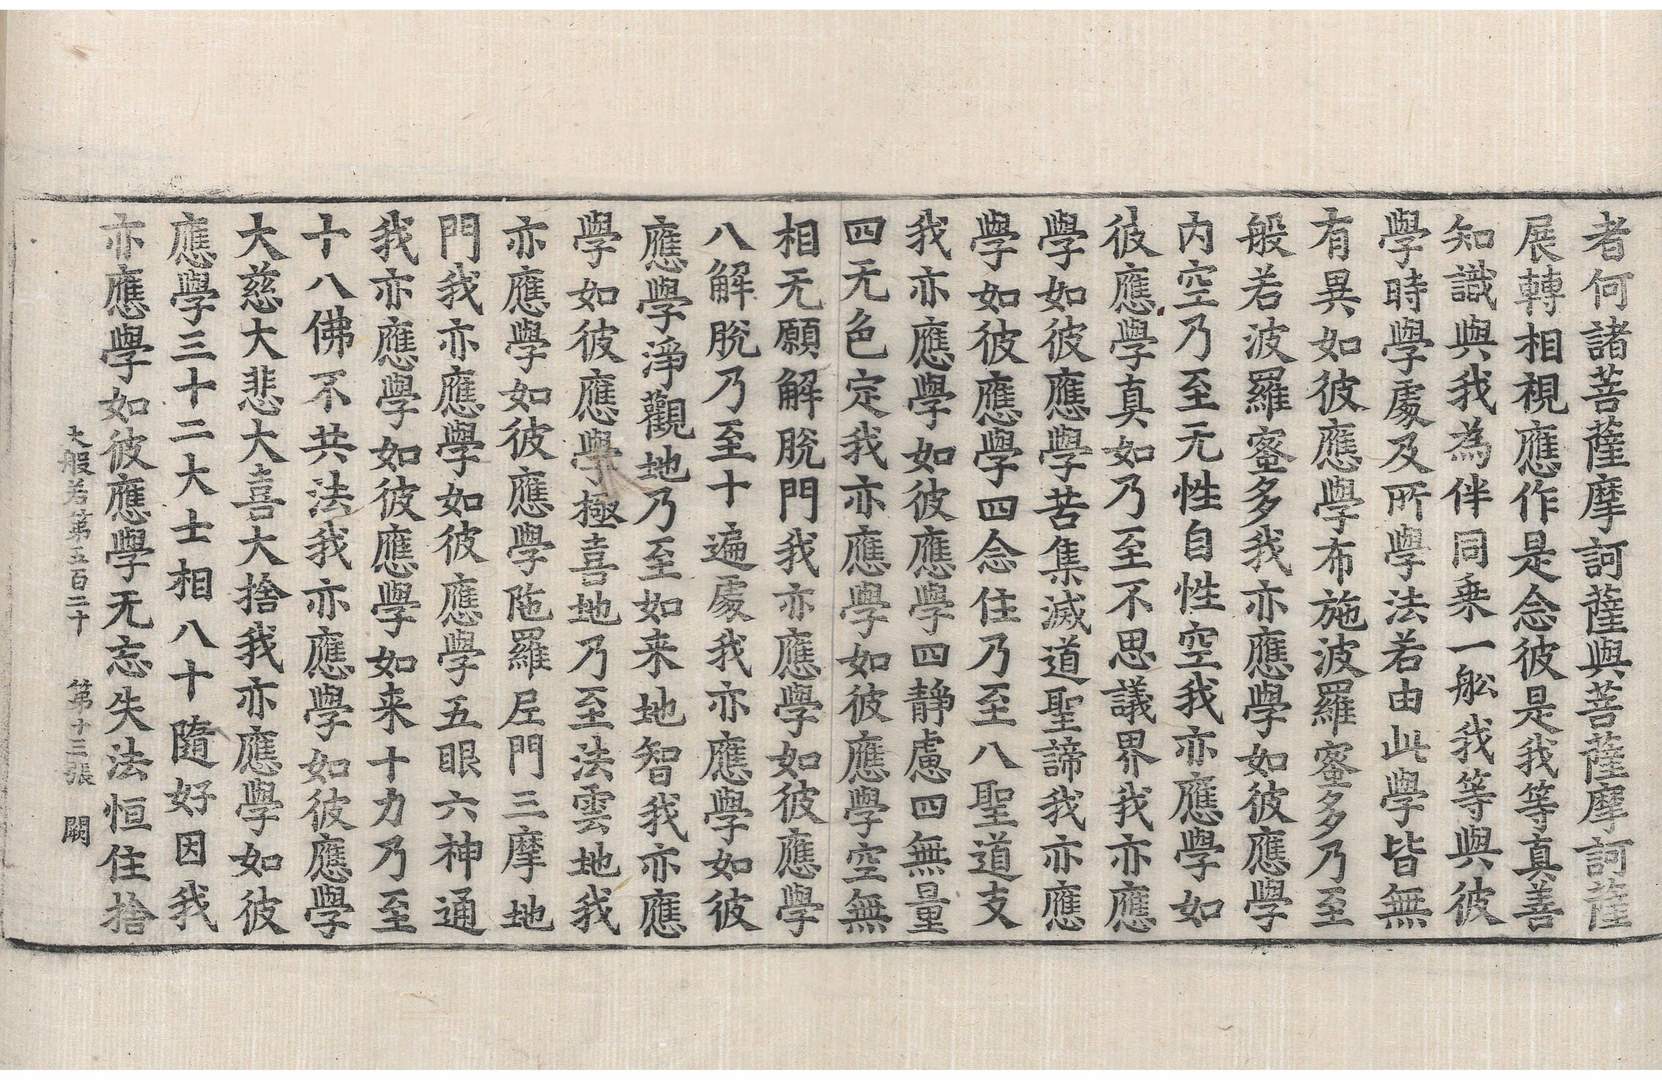 者何諸菩薩摩訶薩與菩薩摩訶薩
展轉相視應作是念彼是我等真善
知識與我為伴同乗一舩我等與彼
學時學處及所學法若由此學皆無
有異如彼應學布施波羅蜜多乃至
般若波羅蜜多我亦應學如彼應學
内空乃至无性自性空我亦應學如
彼應學真如乃至不思議界我亦應
學如彼應學苦集滅道聖諦我亦應
學如彼應學四念住乃至八聖道支
我亦應學如彼應學四靜慮四無量
四无色定我亦應學如彼應學空無
相无願解脫門我亦應學如彼應學
八解脫乃至十遍處我亦應學如彼
應學淨觀地乃至如来地智我亦應
學如彼應學極喜地乃至法雲地我
亦應學如彼應學陁羅尼門三摩地
門我亦應學如彼應學五眼六神通
我亦應學如彼應學如来十力乃至
十八佛不共法我亦應學如彼應學
大慈大悲大喜大捨我亦應學如彼
應學三十二大士相八十隨好因我
亦應學如彼應學无忘失法恒住捨
大般若第五百二十 第十三張 闕